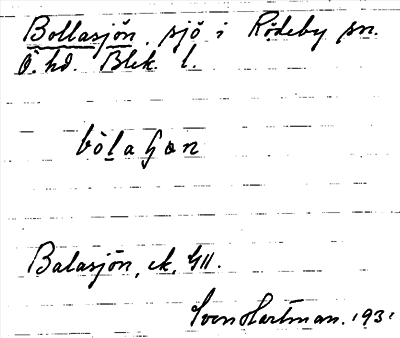 Bollasjön, sjö i Rödeby sn.
Ö. hd. Blek. l.
Balasjön, ek. 411.
Sven Hartman. 1931